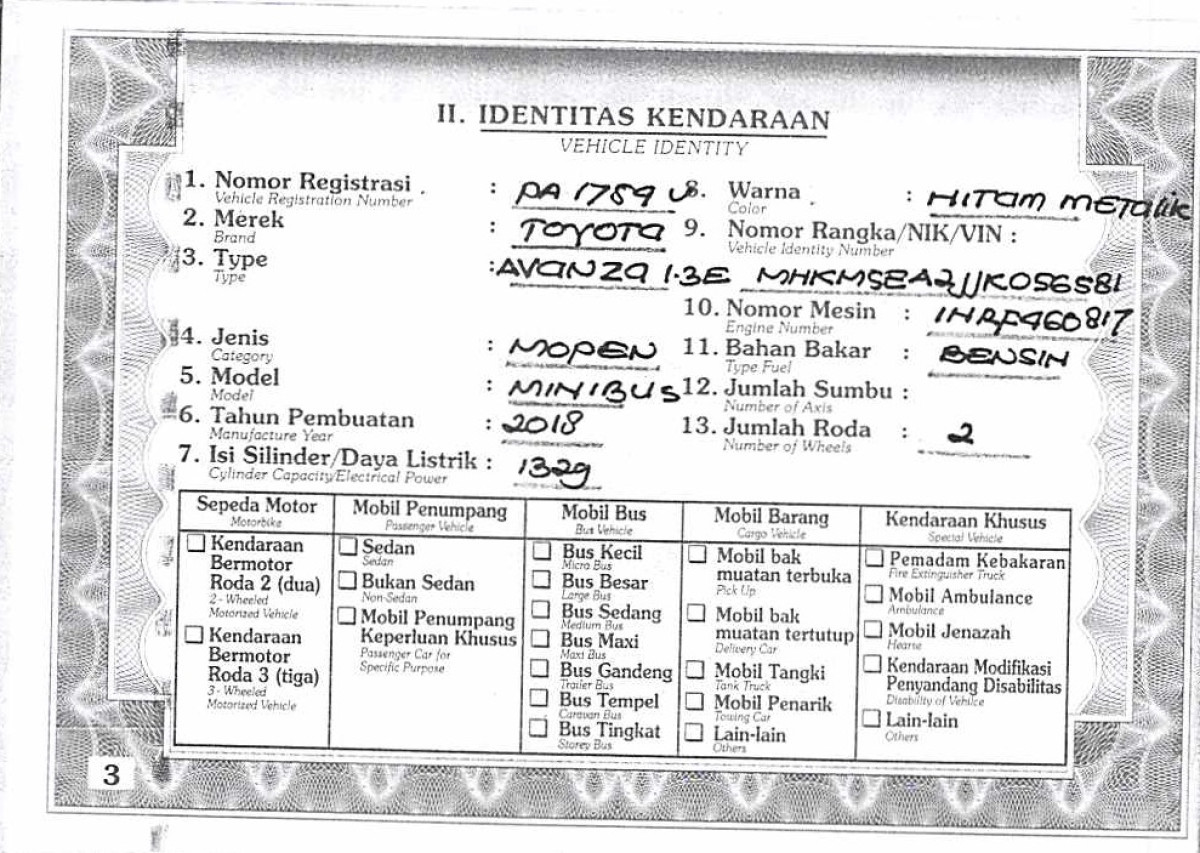 II. IDENTITAS KENDARAAN
VEHICLE IDENTITY
1. Nomor Registrasi : PA 1759 U
Vehicle Registration Number
2. Merek : TOYOTA
Brand
3. Type : AVANZA 1.3E
Type
4. Jenis : MOPEN
Category
5. Model : MINIBUS
Model
6. Tahun Pembuatan : 2018
Manufacture Year
7. Isi Silinder/Daya Listrik : 1329
Cylinder Capacity/Electrical Power
8. Warna : HITAM METALIK
Color
9. Nomor Rangka/NIK/VIN :
Vehicle Identity Number
MHKM5EA2JJK056581
10. Nomor Mesin : 1NRF460817
Engine Number
11. Bahan Bakar : BENSIN
Type Fuel
12. Jumlah Sumbu :
Number of Axis
13. Jumlah Roda : 2
Number of Wheels
Sepeda Motor
Motorbike
Kendaraan
Bermotor
Roda 2 (dua)
2 - Wheeled
Motorized Vehicle
Kendaraan
Bermotor
Roda 3 (tiga)
3 - Wheeled
Motorized Vehicle
Mobil Penumpang
Passenger Vehicle
Sedan
Sedan
Bukan Sedan
Non-Sedan
Mobil Penumpang
Keperluan Khusus
Passenger Car for
Specific Purpose
Mobil Bus
Bus Vehicle
Bus Kecil
Micro Bus
Bus Besar
Large Bus
Bus Sedang
Medium Bus
Bus Maxi
Maxi Bus
Bus Gandeng
Trailer Bus
Bus Tempel
Caravan Bus
Bus Tingkat
Storey Bus
Mobil Barang
Cargo Vehicle
Mobil bak
muatan terbuka
Pick Up
Mobil bak
muatan tertutup
Delivery Car
Mobil Tangki
Tank Truck
Mobil Penarik
Towing Car
Lain-lain
Others
Kendaraan Khusus
Special Vehicle
Pemadam Kebakaran
Fire Extinguisher Truck
Mobil Ambulance
Ambulance
Mobil Jenazah
Hearse
Kendaraan Modifikasi
Penyandang Disabilitas
Disability of Vehilce
Lain-lain
Others
3